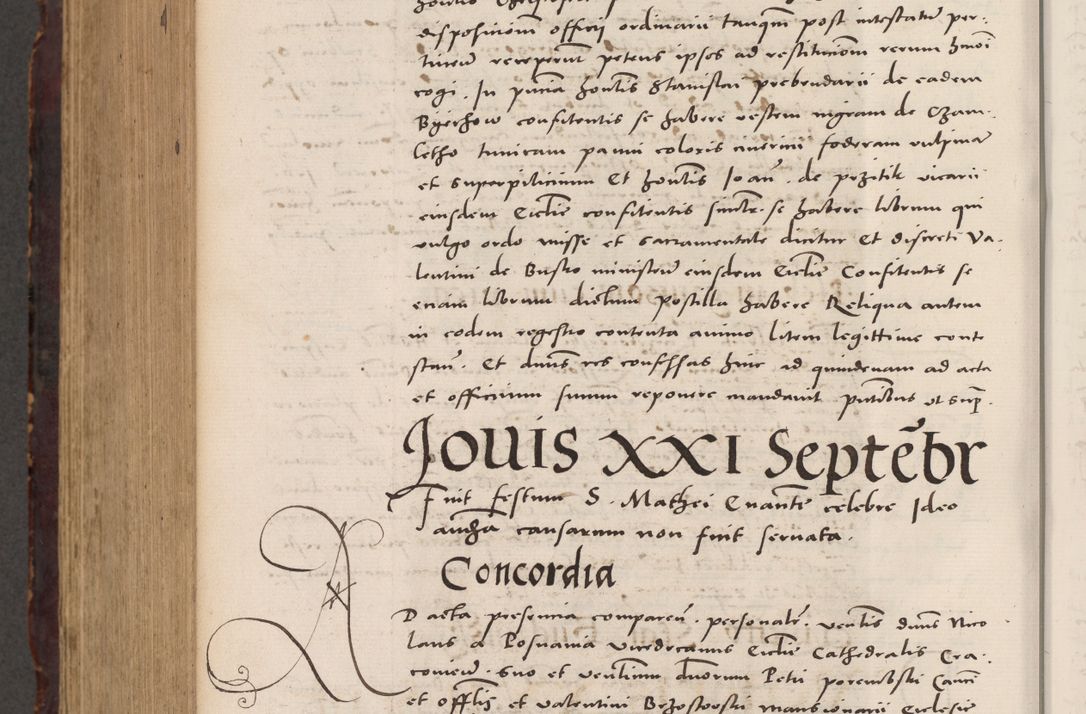 dispositioni officij ordinarii tanqm̃ post intestatũ per-
tineñ receperunt petens ipsos ad restitucionem rerum hmõi
cogi. In pñcia hoñlis Stanislai prebendarii de eadem
Byerzhow confitentis se habere vestem nigram de Czam-
letho tunicam panni coloris cinericii foderam vulpinam
et superpilicium Et hoñlis Joañ. de przitik vicarii
eiusdem Ecclie confitentis similr. se habere librum qui
vulgo ordo misse et sacramentale dicitur Et discreti Va-
lentini de Busko ministri eiusdem Ecclie Confitentis se
eciam librum dictum postilla habere Reliqua autem
in eodem regestro contenta animo litem legittime conte
stañ. Et dñus res confessas hinc ad quindenam ad acta
et officium suum reponere mandavit pñtibus ut supª.
Jouis XXI Septẽbr
Fuit festum S. Mathei Euañte celebre Ideo
audiã causarum non fuit seruata.
Concordia
AD acta presencia compareñ. personalr̃. veñlis dñus Nico
laus a Posnania vicedecanus Ecclie Cathedralis Cra-
covieñ. suo et veñlium dñorum Petri porembski Canci
et offilis et valentini Brzostowski mansionarii Ecclesie